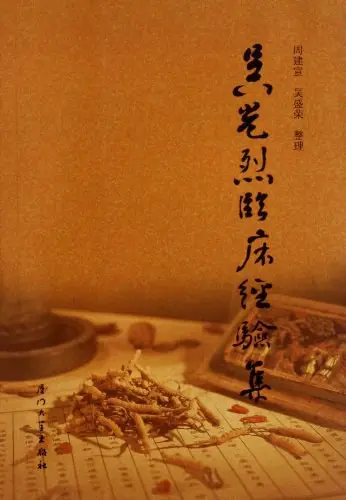 吴光烈临床经验集
周建宣 吴盛荣 整理
厦门大学出版社